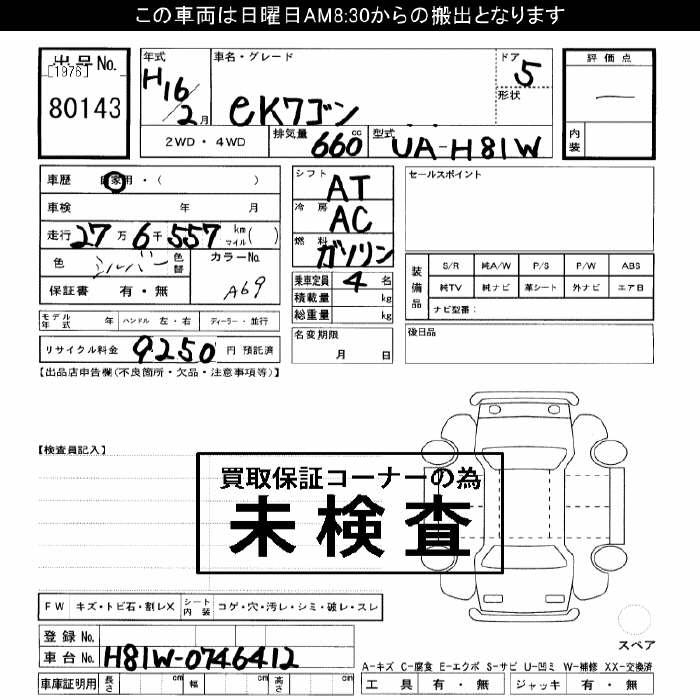 この車両は日曜日AM8:30からの搬出となります
出品No.
[1976]
80143
年式
H16/2月
車名・グレード
eKワゴン
ドア
5
形状
評価点
―
内装
2WD・4WD
排気量 660cc
型式 UA-H81W
車歴 自家用・( )
車検 年 月
走行 27万6千557 km マイル( )
色 シルバー 色替
カラーNo. A69
保証書 有・無
モデル年式 年 ハンドル 左・右 ディーラー・並行
リサイクル料金 9250 円 預託済
シフト AT
冷房 AC
燃料 ガソリン
乗車定員 4 名
積載量 kg
総重量 kg
名変期限
月 日
セールスポイント
装備品
S/R 純A/W P/S P/W ABS
純TV 純ナビ 革シート 外ナビ エアB
ナビ型番:
後日品
【出品店申告欄(不良箇所・欠品・注意事項等)】
【検査員記入】
買取保証コーナーの為
未検査
FW キズ・トビ石・割レX シート内装 コゲ・穴・汚レ・シミ・破レ・スレ
登録No.
車台No. H81W-0746412
車庫証明用 長さ cm 幅 cm 高さ cm
スペア
A-キズ C-腐食 E-エクボ S-サビ U-凹ミ W-補修 XX-交換済
工具 有・無 ジャッキ 有・無